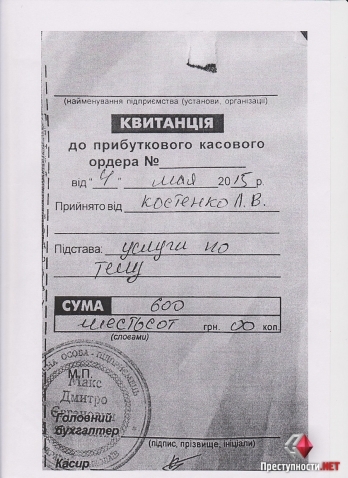 (найменування підприємства (установи, організації)
КВИТАНЦІЯ
до прибуткового касового
ордера №
від "4" мая 2015 р.
Прийнято від Костенко Л.В.
Підстава: услуги по
телу
СУМА 600
шестьсот грн. 00 коп.
(словами)
ОСОБА-ПІДПРИЄМЕЦЬ
М.П.
Макс
Дмитро
Головний
бухгалтер
(підпис, прізвище, ініціали)
Касир
Преступности.NET